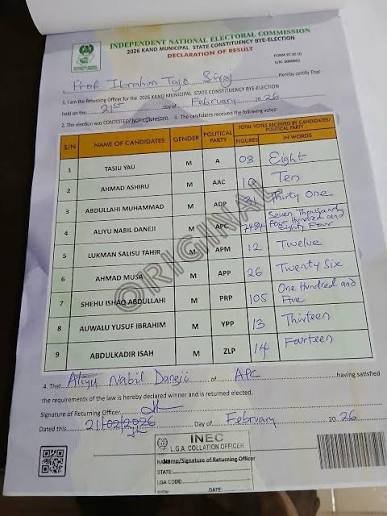 INDEPENDENT NATIONAL ELECTORAL COMMISSION
2026 KANO MUNICIPAL STATE CONSTITUENCY BYE-ELECTION
DECLARATION OF RESULT
Prof Ibrahim Tajo Siraj hereby certify that
1. I am the Returning Officer for the 2026 KANO MUNICIPAL STATE CONSTITUENCY BYE-ELECTION
held on the 21st day of February 20 26
2. The election was CONTESTED 3. The candidates received the following votes
S/N NAME OF CANDIDATES GENDER POLITICAL PARTY TOTAL VOTES RECEIVED BY CANDIDATES/ POLITICAL PARTY
FIGURES IN WORDS
1 TASIU YAU M A 08 Eight
2 AHMAD ASHIRU M AAC 10 Ten
3 ABDULLAHI MUHAMMAD M ADP 31 Thirty One
4 ALIYU NABIL DANEJI M APC 7484 Seven Thousand Four Hundred and Eighty Four
5 LUKMAN SALISU TAHIR M APM 12 Twelve
6 AHMAD MUSA M APP 26 Twenty Six
7 SHEHU ISHAQ ABDULLAHI M PRP 105 One Hundred and Five
8 AUWALU YUSUF IBRAHIM M YPP 13 Thirteen
9 ABDULKADIR ISAH M ZLP 14 Fourteen
ORIGINAL
4. That Aliyu Nabil Daneji of APC having satisfied
the requirements of the law is hereby declared winner and is returned elected.
Signature of Returning Officer
Dated this 21/02/2026 Day of February 20 26
INEC
L.G.A. COLLATION OFFICER
Name/Signature of Returning Officer
STATE:
LGA CODE:
DATE: